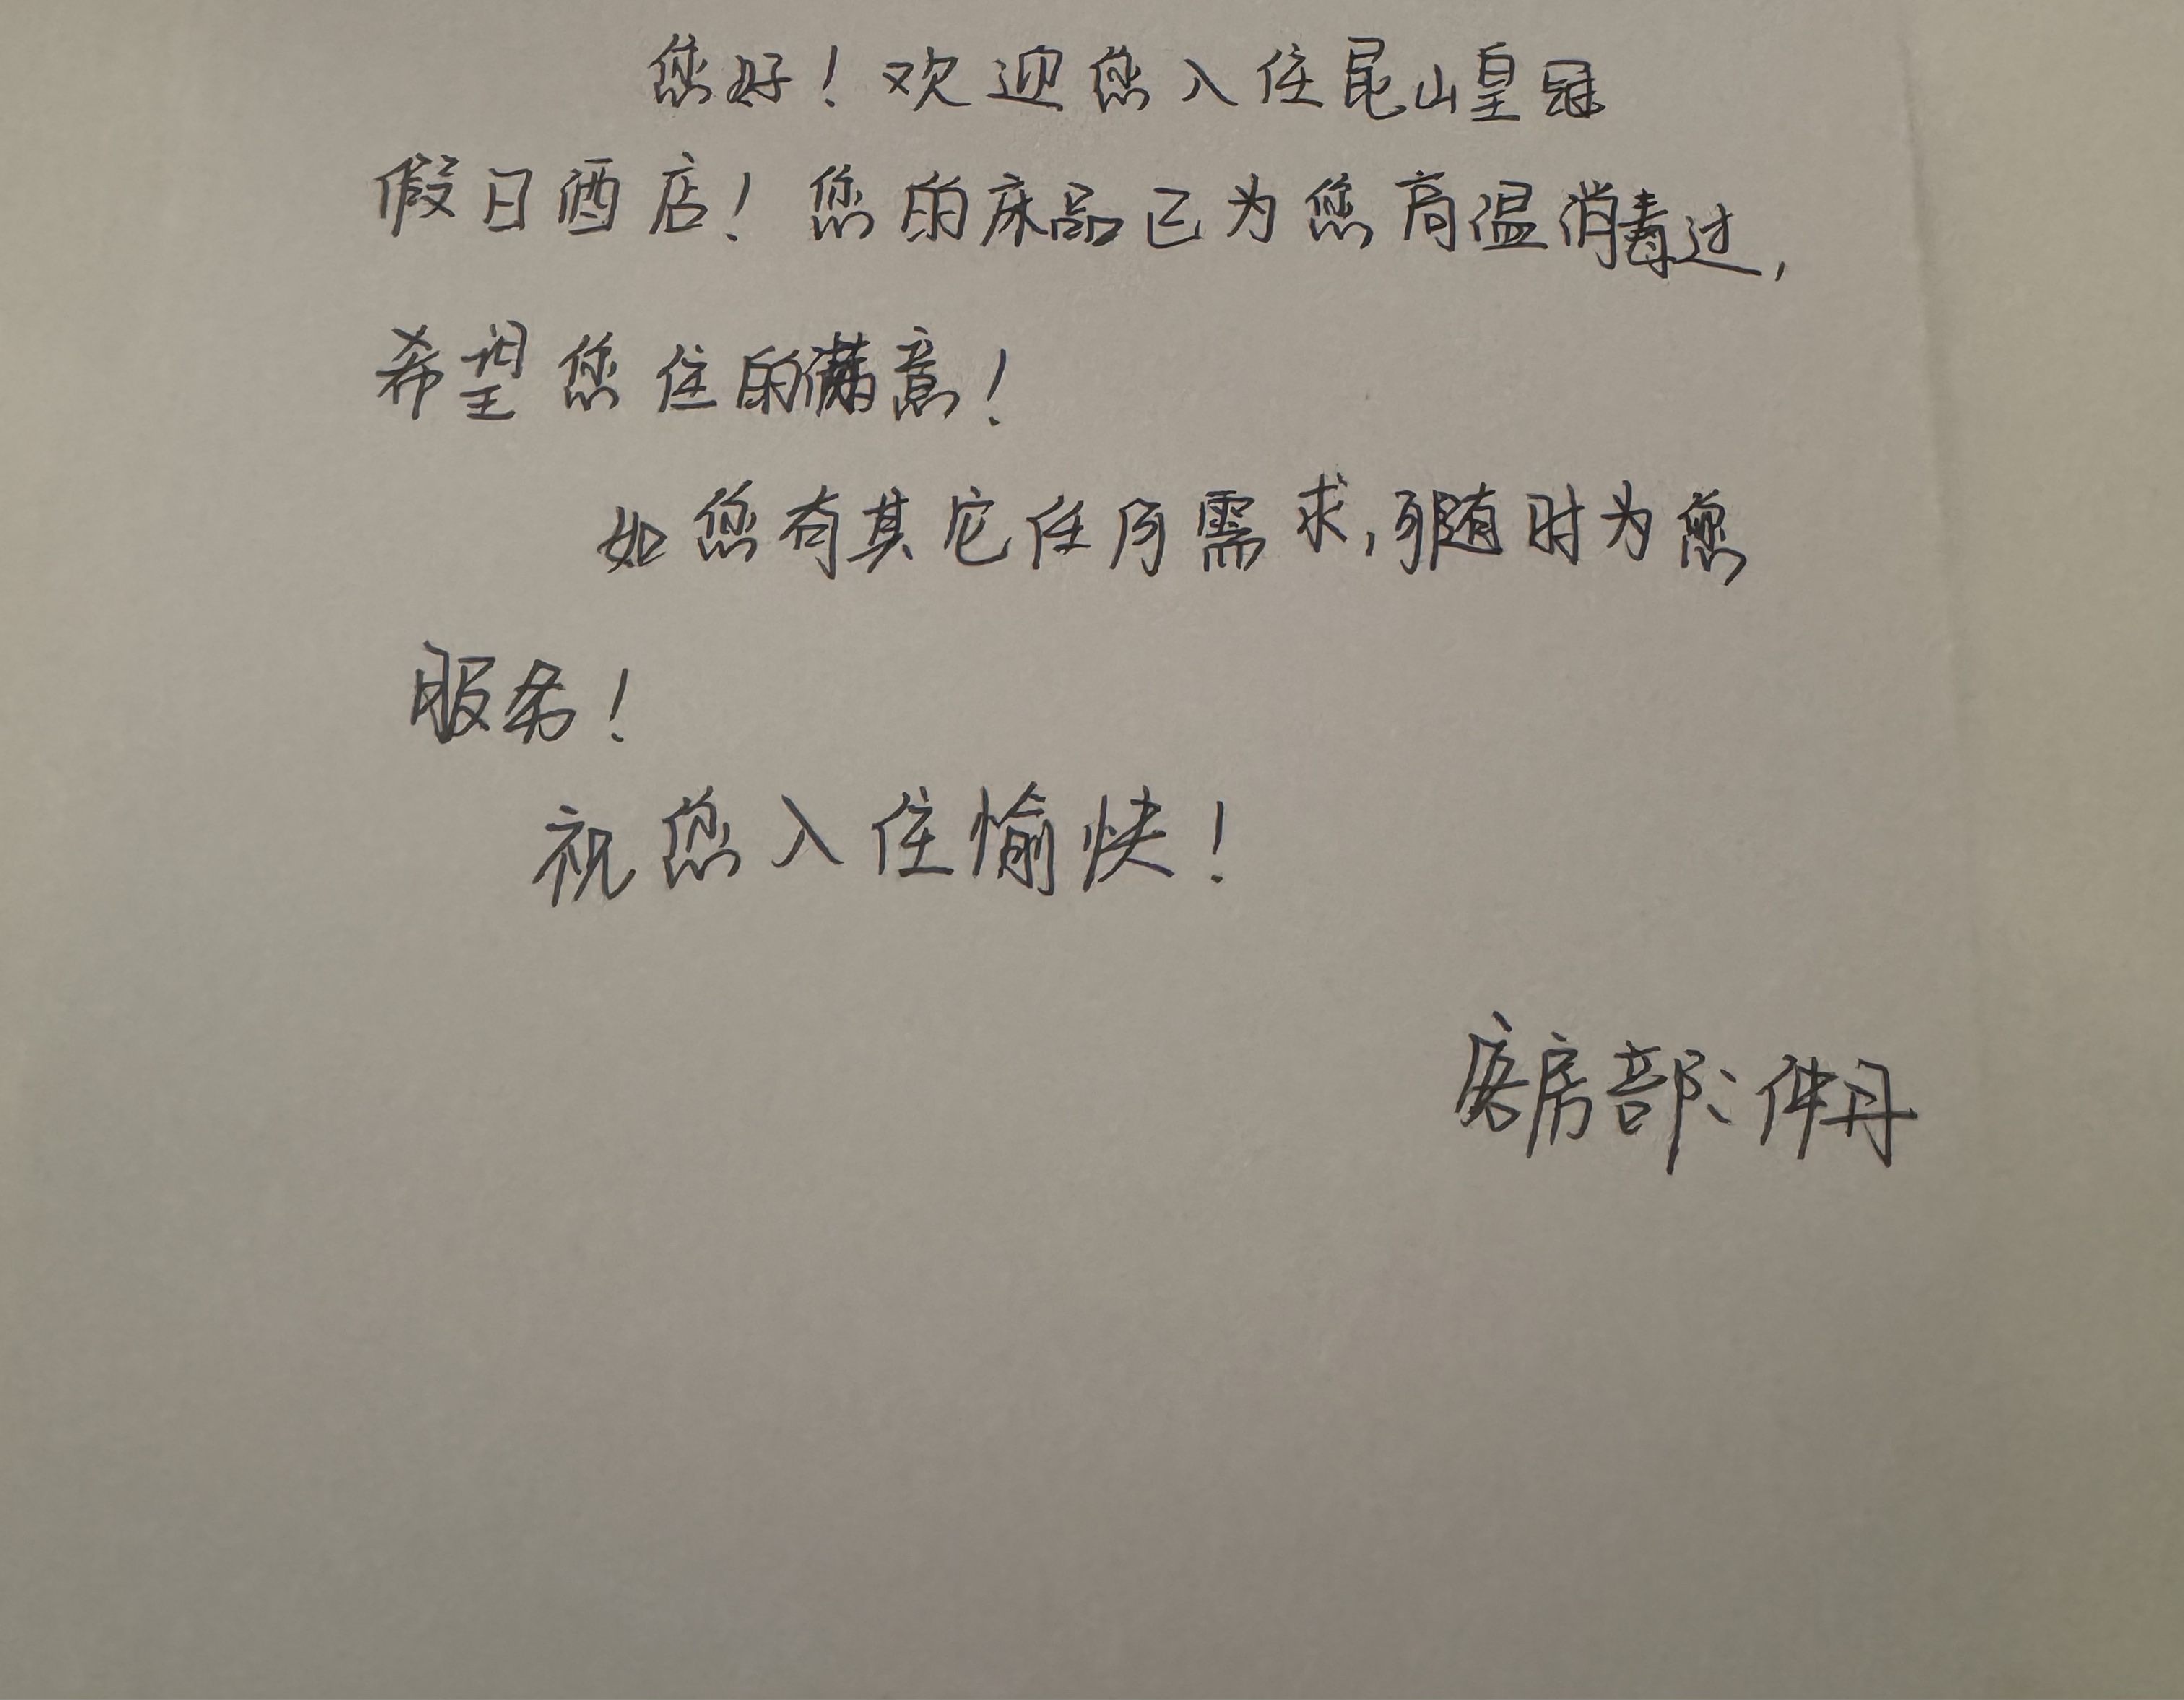 您好！欢迎您入住昆山皇冠
假日酒店！您的床品已为您高温消毒过，
希望您住的满意！
如您有其它任何需求，可随时为您
服务！
祝您入住愉快！
客房部：仲丹